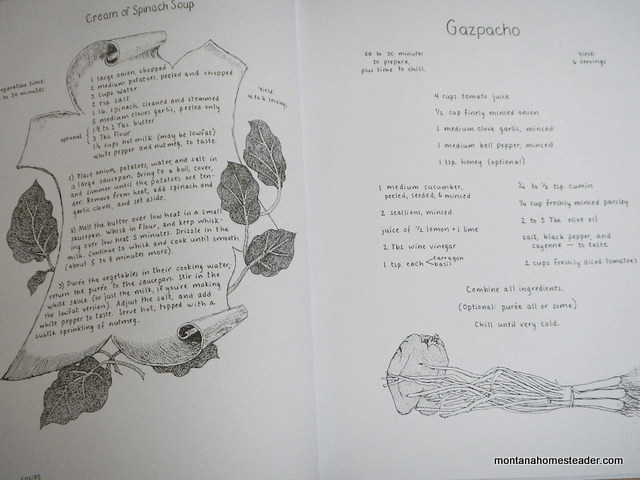 Cream of Spinach Soup
Preparation time:
to 30 minutes
Yield:
4 to 6 servings
1 large onion, chopped
2 medium potatoes, peeled and chopped
3 cups water
2 tsp. salt
1 lb. spinach cleaned and stemmed
5 medium cloves garlic, peeled only
optional
1½ to 2 Tbs. butter
3 Tbs. flour
1½ cups hot milk (may be lowfat)
white pepper and nutmeg, to taste
1) Place onion, potatoes, water, and salt in
a large saucepan. Bring to a boil, cover,
and simmer until the potatoes are ten-
der. Remove from heat, add spinach and
garlic cloves, and set aside.
2) Melt the butter over low heat in a small
saucepan. Whisk in flour, and keep whisk-
ing over low heat 5 minutes. Drizzle in the
milk. Continue to whisk and cook until smooth
(about 5 to 8 minutes more).
3) Purée the vegetables in their cooking water,
return the purée to the saucepan. Stir in the
white sauce (or just the milk, if you're making
the lowfat version). Adjust the salt, and add
white pepper to taste. Serve hot, topped with a
subtle sprinkling of nutmeg.
SOUPS
Gazpacho
minutes
to prepare,
plus time to chill.
Yield:
6 servings
4 cups tomato juice
½ cup finely minced onion
1 medium clove garlic, minced
1 medium bell pepper, minced
1 tsp. honey (optional)
1 medium cucumber,
peeled, seeded, & minced
2 scallions, minced
juice of ½ lemon + 1 lime
2 Tbs. wine vinegar
1 tsp. each tarragon
basil
¼ to ½ tsp. cumin
¼ cup freshly minced parsley
2 to 3 Tbs. olive oil
salt, black pepper, and
cayenne — to taste
2 cups freshly diced tomatoes
Combine all ingredients.
(Optional: purée all or some)
Chill until very cold.
montanahomesteader.com